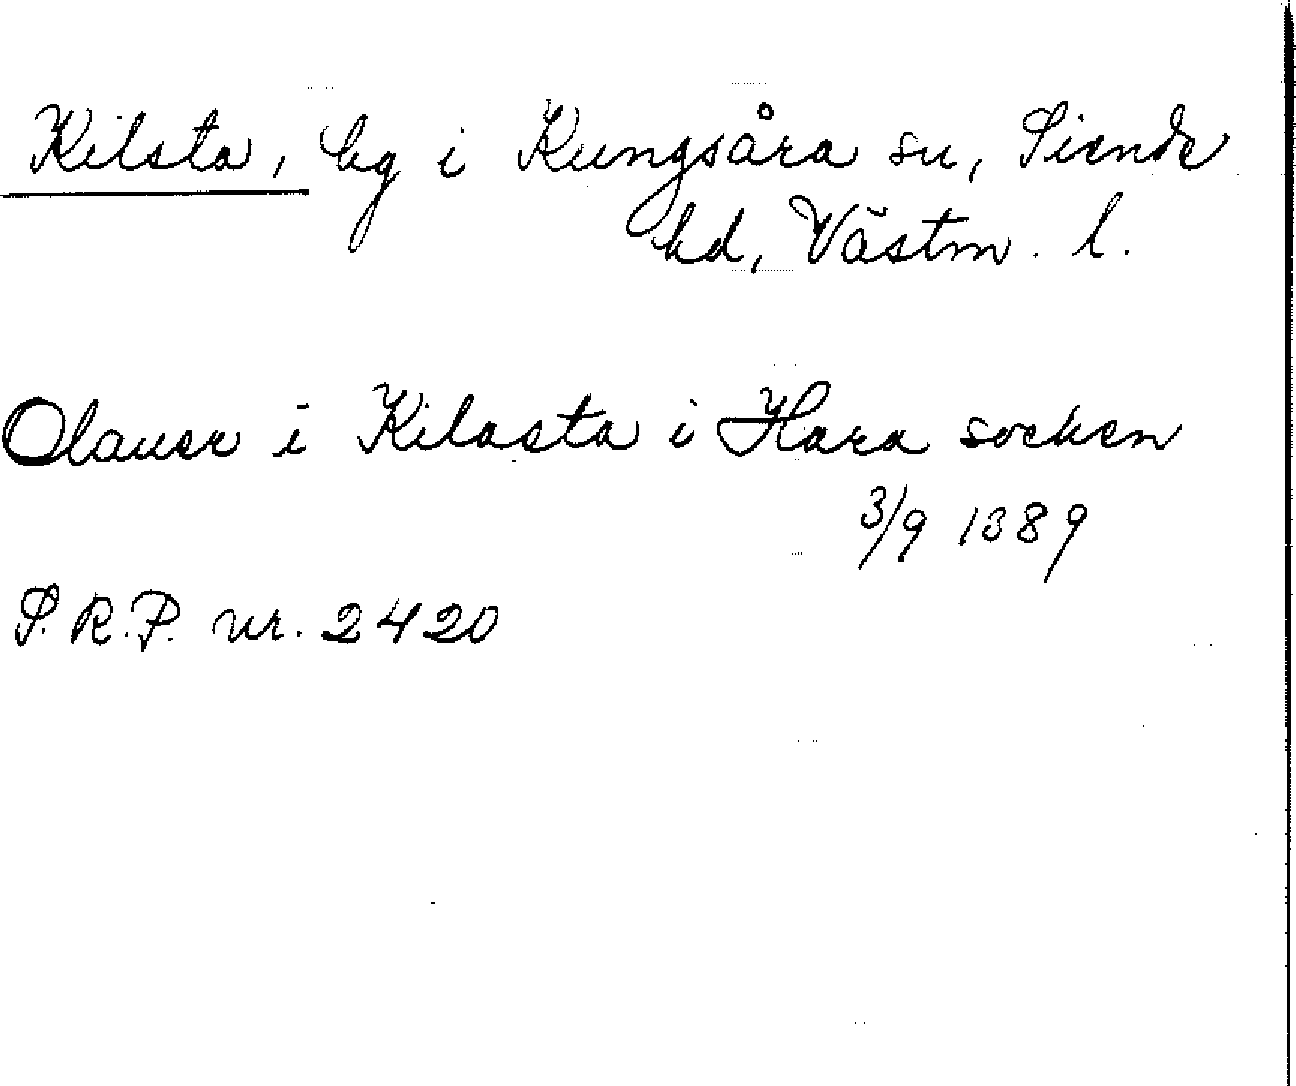 Kilsta, by i Kungsåra sn, Siende
hd, Västm. l.
Olauer i Kilasta i Hara socken
3/9 1389
S.R.P. nr. 2420